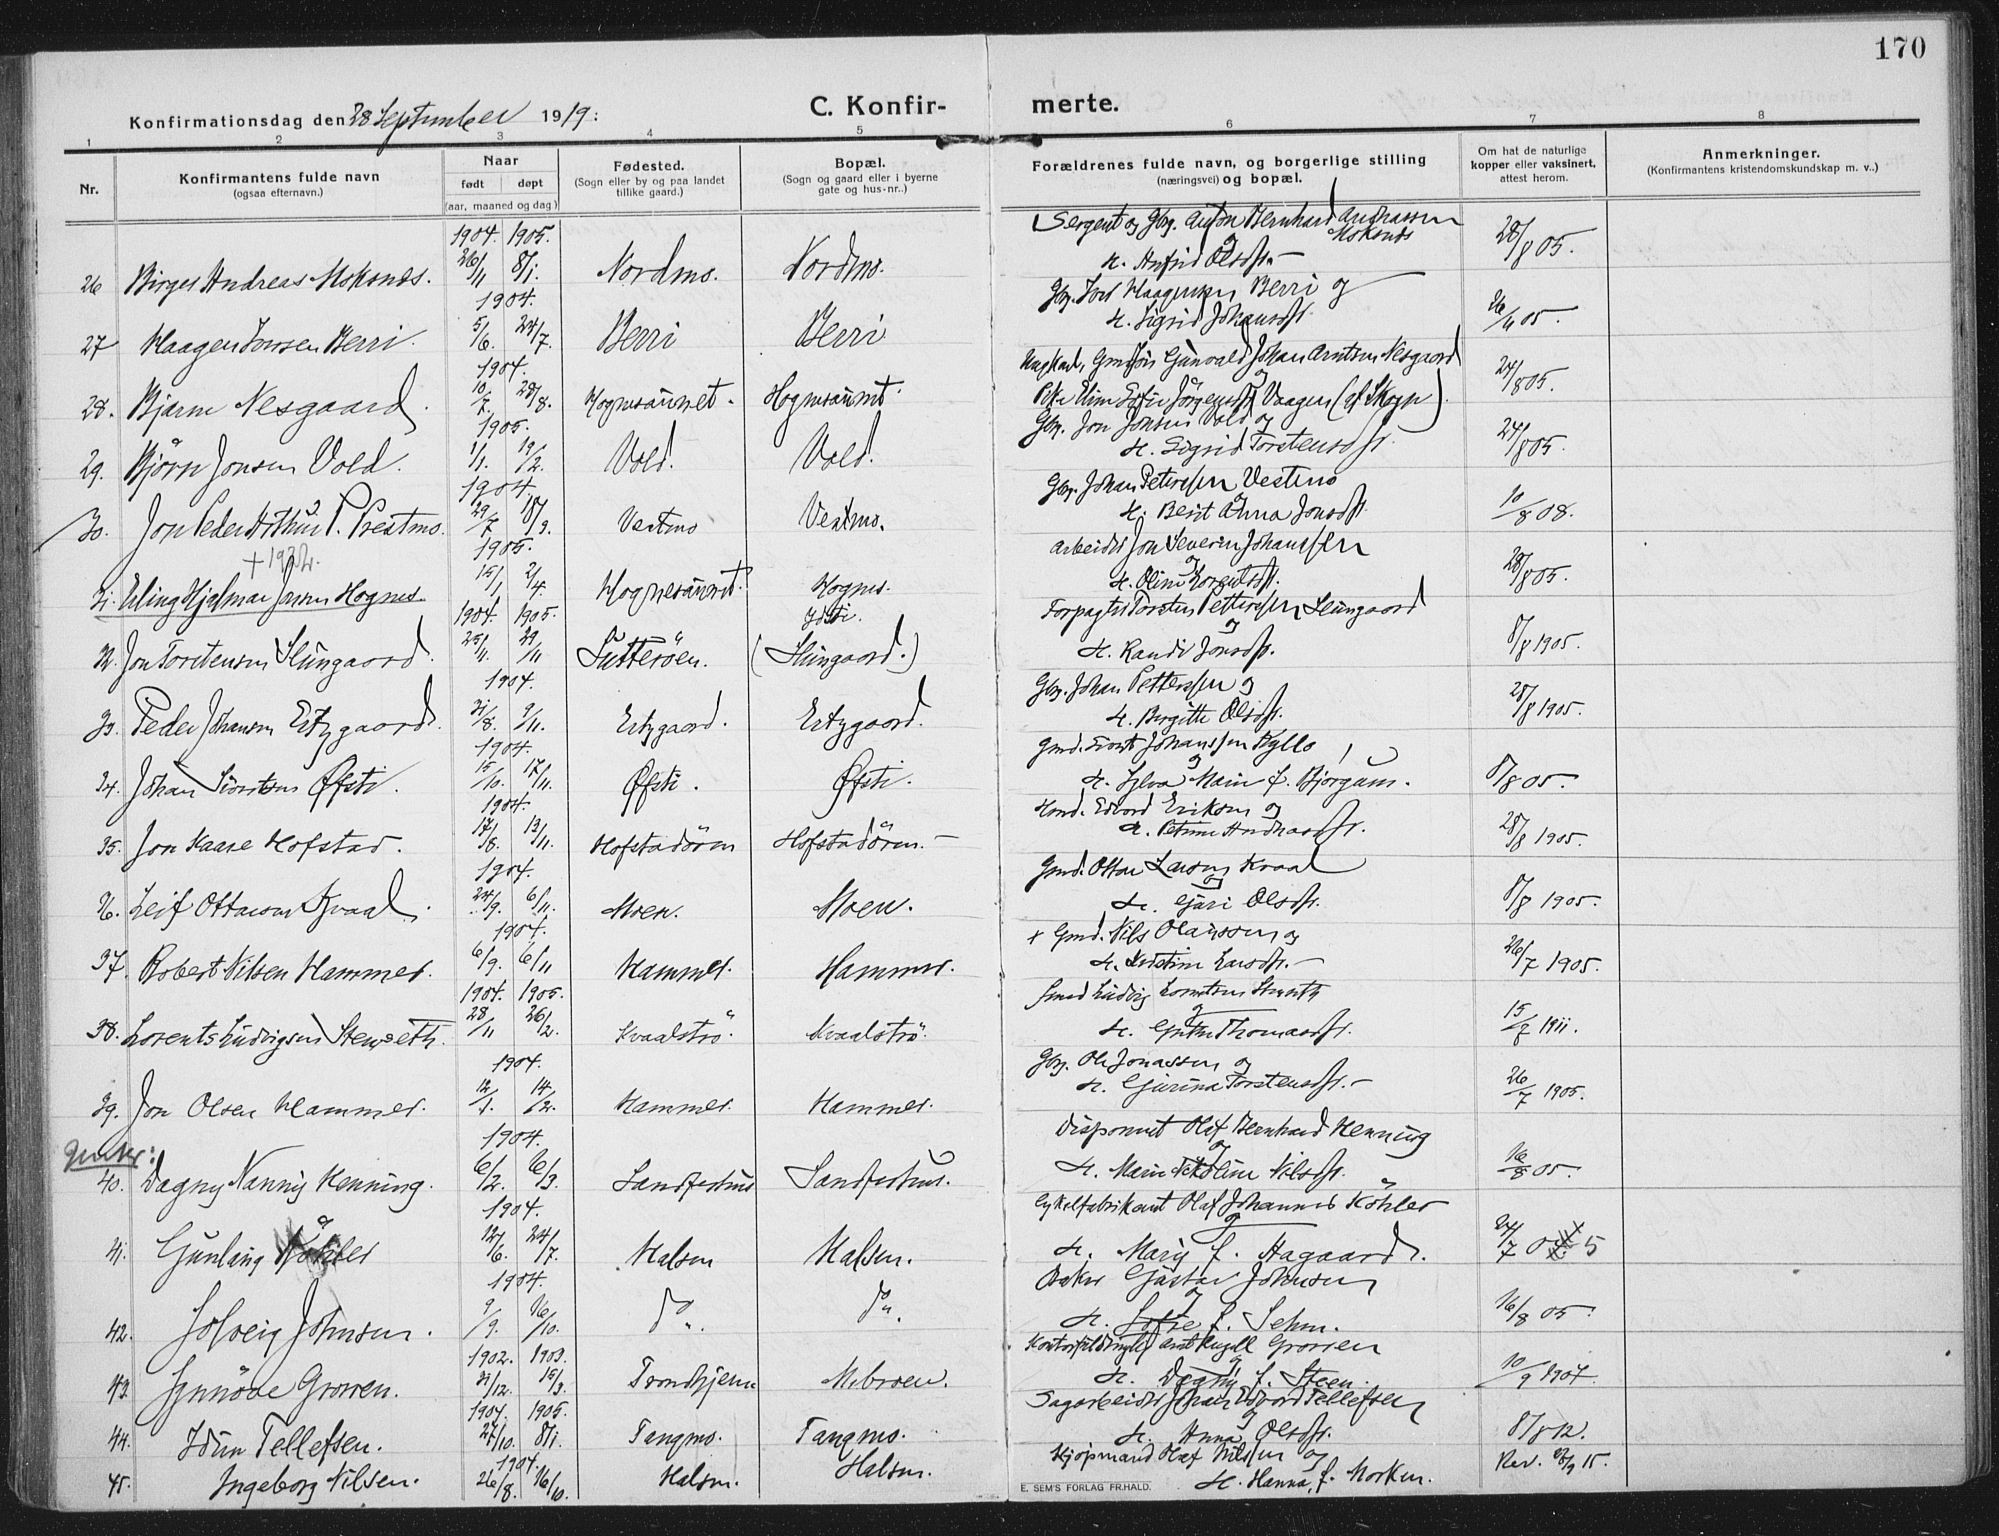 170
Konfirmationsdag den 28 September 1919:
C. Konfir- merte.
1 2 3 4 5 6 7 8
Nr.
Konfirmantens fulde navn
(ogsaa efternavn.)
Naar
født døpt
(aar, maaned og dag.)
Fødested.
(Sogn eller by og paa landet
tillike gaard.)
Bopæl.
(Sogn og gaard eller i byerne
gate og hus-nr..)
Forældrenes fulde navn, og borgerlige stilling
(næringsvei) og bopæl.
Om hat de naturlige
kopper eller vaksinert,
attest herom.
Anmerkninger.
(Konfirmantens kristendomskundskap m. v..)
1904. 1905. Sergent og Gbr. Anton Bernhard Andreassen Moksnes
26 Birger Andreas Moksnes. 26/11 8/1. Nordmo. Nordmo. H. Anfrid Olsdtr. 28/8 05.
1904. Gbr. Haagensen Berri og
27 Haagen Berri. 5/6. 24/7. Berri Berri H. Sigrid Johansdtr. 05.
1904. Gunvald Johan Arntsen Nesgaard
28. Bjarne Nesgaard. 10/7. 28/8. Hognesaunet. Hognesaunet. 24/8 05.
1905. Gbr. Jon Jonsen Vold og
29. Bjørn Jonsen Vold. 1/1. 19/2. Vold. Vold. H. Sigrid Torstensdtr. 24/8 05.
1904. Gbr. Johan Peterssen Vestmo
30. Jon Peder Arthur P. Prestmo. 29/7 18/9. Vestmo Vestmo. H. Berit Anna Jonsdtr. 10/8 08.
+ 1932.
1905. Arbeider Jon Severin Johanssen
31. Erling Hjalmar Jonsen Hognes. 15/1 2/4. Hognesaunet. Hognes. H. Oline Lorentsdtr. 28/8 05.
1904. 1905. Forpagter Torsten Petterssen Slungaard
32. Jon Torstensen Slungaard. 25/11. Sutterøen. (Slungaard.) H. Randi Jonsdtr. 8/8 1905.
1904. Gbr. Johan Petterssen og
33. Peder Johansen Ertzgaard. 31/8. 9/11. Ertzgaard. Ertzgaard. H. Birgitte Olsdtr. 28/8 1905.
1904. Gmd. Johanssen Kyllo
34. Johan Øfsti. 15/10. 17/11. Øfsti. Øfsti. H. Marie f. Bjørgum. 8/8 05.
1904. Hmd. Edvard Eriksen og
35. Jon Kaare Hofstad. 17/8. 13/11. Hofstadøren Hofstadøren. H. Petrine Andreasdtr. 28/8 1905.
1904. Gmd. Ottar Larsen Kvaal
36. Leif Ottarsen Kvaal. 24/9. 6/11. Moen. Moen. H. Guri Olsdtr. 8/8 1905.
1904. + Gmd. Nils Olaussen og
37. Robert Nilsen Hammer. 6/9. 6/11 Hammer. Hammer. H. Kristine Larsdtr. 26/7 1905.
1904. 1905. Smed Ludvig Lorentsen
38. Lorents Ludvigsen Stenseth. 28/11 26/2. Kvaalstrø. Kvaalstrø. H. Thomasdtr. 15/7 1911.
1904. Gbr. Ole Jonassen og
39. Jon Olsen Hammer. 12/1. 14/2. Hammer. Hammer. H. Gurina Torstensdtr. 26/7 1905.
Piker:
1904. Disponent Olaf Bernhard Henning
40. Dagny Nanny Henning. 6/2. 6/3. Sandferhus Sandferhus. H. Marie Nikoline Nilsdtr. 16/8 05.
1904. Cykelfabrikant Olaf Johannes Köhler
41. Gunlaug Köhler 12/6. 24/7. Halsen Halsen. H. Mary f. Aagaard. 24/7 05
1904. Baker Gustav Johnsen
42. Solveig Johnsen. 9/9. 16/10. do. do. H. Sofie f. Sehm. 16/8 05.
1902. 1903.
43. Synnöve Grorren. 31/12. 15/3. Trondhjem Mebroen. H. Dagny f. Steen. 10/9 1904.
1904. 1905. Sagarbeider Johan Edvard Tellefsen
44. Idun Tellefsen. 27/10. 8/1. Tangmo. Tangmo. H. Anna Olsdtr. 8/8 12.
1904. Kjøpmand Olaf Nilsen og
45. Ingeborg Nilsen. 26/8. 16/10. Halsen. Halsen. H. Hanna, f. Morken. Rev. 15.
E. SEM'S FORLAG FR.HALD.